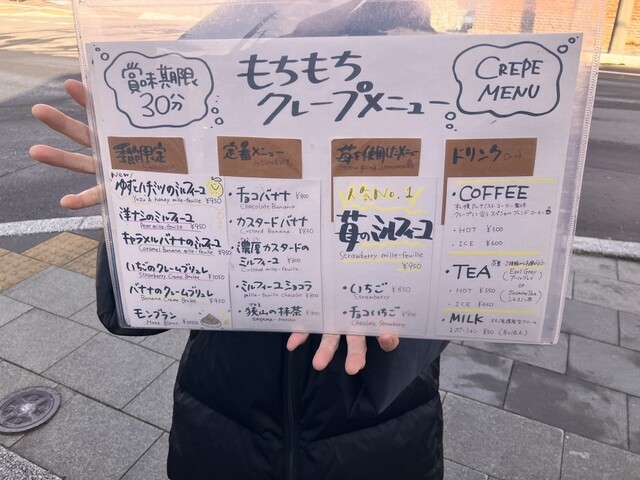 賞味期限
30分
もちもち
クレープメニュー
CREPE
MENU
季節限定
New
ゆずとハチミツのミルフィーユ
Yuzu & honey mille-feuille ¥950
洋ナシのミルフィーユ
Pear mille-feuille ¥950
キャラメルバナナのミルフィーユ
Caramel Banana mille-feuille ¥950
いちごのクレームブリュレ
Strawberry Creme Brulee ¥950
バナナのクレームブリュレ
Banana Creme Brulee ¥950
モンブラン
Mont Blanc
定番メニュー
・チョコバナナ
Chocolate Banana ¥800
・カスタードバナナ
Custard Banana ¥800
・濃厚カスタードの
ミルフィーユ ¥800
Custard mille-feuille
・ミルフィーユショコラ
mille-feuille chocolat ¥800
・狭山の抹茶 ¥900
苺を使用したメニュー
人気No.1
苺のミルフィーユ
Strawberry mille-feuille
¥950
・いちご ¥850
Strawberry
・チョコいちご ¥900
Chocolate Strawberry
ドリンク
・COFFEE
・HOT ¥500
・ICE ¥600
・TEA
Earl Grey
or
Jasmine Tea
・HOT ¥550
・ICE
・MILK